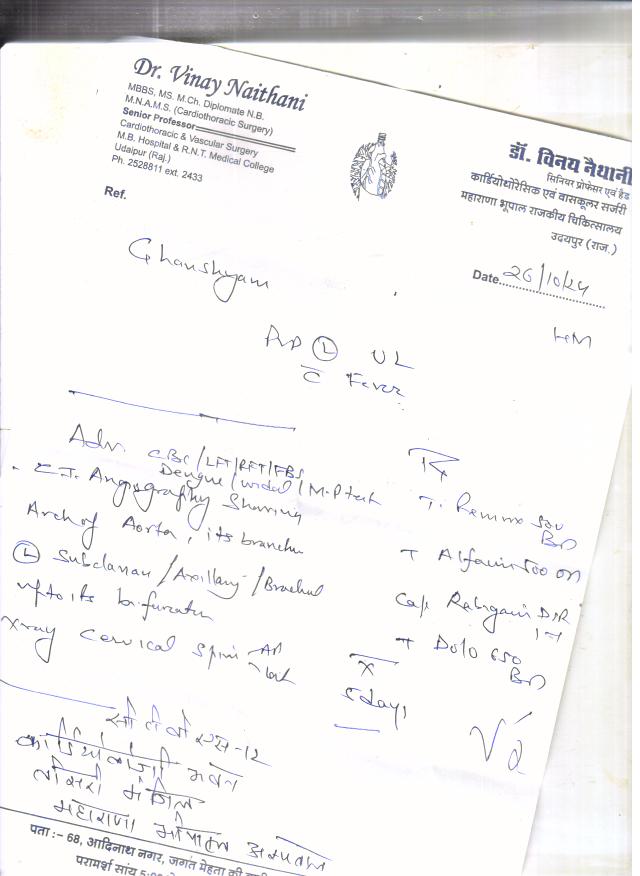 Dr. Vinay Naithani
MBBS, MS. M.Ch. Diplomate N.B.
M.N.A.M.S. (Cardiothoracic Surgery)
Senior Professor
Cardiothoracic & Vascular Surgery
M.B. Hospital & R.N.T. Medical College
Udaipur (Raj.)
Ph. 2528811 ext. 2433
Ref.
डॉ. विनय नैथानी
सिनियर प्रोफेसर एवं हैड
कार्डियोथोरेसिक एवं वासकूलर सर्जरी
महाराणा भूपाल राजकीय चिकित्सालय
उदयपुर (राज.)
Date 26/10/24
Ghanshyam
(L) UL
c̄ Fever
Adv. CBC/LFT/RFT/FBS
Dengue/widal/M.P test
C.T. Angiography Showing
Arch of Aorta, its branches
(L) Subclavian/Axillary/Brachial
upto its bifurcation
Xray Cervical Spine AP
Lat
Rx
BD
OD
Cap. DSR
T Dolo 650
BD
x
5 days
तीसरी मंजिल
महाराणा भोपाल अस्पताल
पता :- 68, आदिनाथ नगर, जगत मेहता की
परामर्श सांय 5:0